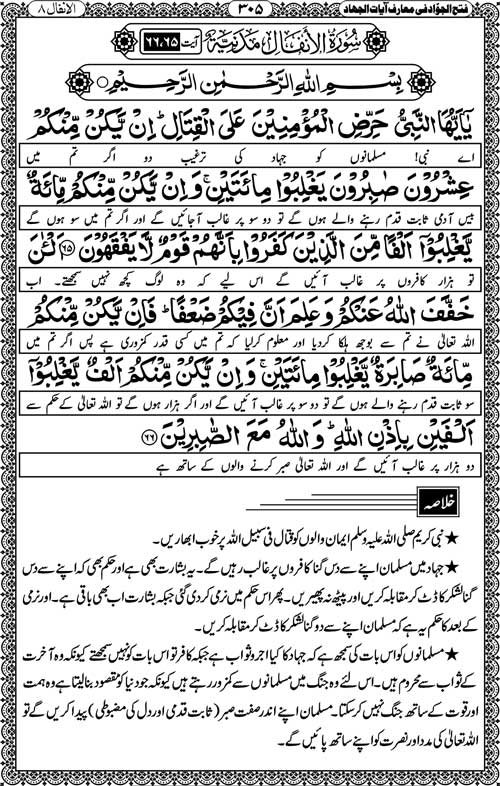 فتح الجوّاد فی معارف آیات الجہاد ۳۰۵ الانفال ۸
سُوْرَۃُ الْاَنْفَالِ مَدَنِیَّۃٌ آیت ۶۶،۶۵
بِسْمِ اللّٰہِ الرَّحْمٰنِ الرَّحِیْمِ
یٰۤاَیُّهَا النَّبِیُّ حَرِّضِ الْمُؤْمِنِیْنَ عَلَی الْقِتَالِؕ اِنْ یَّكُنْ مِّنْكُمْ
اے نبی! مسلمانوں کو جہاد کی ترغیب دو اگر تم میں
عِشْرُوْنَ صٰبِرُوْنَ یَغْلِبُوْا مِائَتَیْنِۚ وَاِنْ یَّكُنْ مِّنْكُمْ مِّائَةٌ
بیس آدمی ثابت قدم رہنے والے ہوں گے تو دو سو پر غالب آجائیں گے اور اگر تم میں سو ہوں گے
یَّغْلِبُوْۤا اَلْفًا مِّنَ الَّذِیْنَ كَفَرُوْا بِاَنَّهُمْ قَوْمٌ لَّا یَفْقَهُوْنَ ﴿۶۵﴾ اَلْـٰٔنَ
تو ہزار کافروں پر غالب آئیں گے اس لیے کہ وہ لوگ کچھ نہیں سمجھتے۔ اب
خَفَّفَ اللّٰهُ عَنْكُمْ وَعَلِمَ اَنَّ فِیْكُمْ ضَعْفًاؕ فَاِنْ یَّكُنْ مِّنْكُمْ
اللہ تعالیٰ نے تم سے بوجھ ہلکا کردیا اور معلوم کرلیا کہ تم میں کسی قدر کمزوری ہے پس اگر تم میں
مِّائَةٌ صَابِرَةٌ یَّغْلِبُوْا مِائَتَیْنِۚ وَاِنْ یَّكُنْ مِّنْكُمْ اَلْفٌ یَّغْلِبُوْۤا
سو ثابت قدم رہنے والے ہوں گے تو دو سو پر غالب آئیں گے اور اگر ہزار ہوں گے تو اللہ تعالیٰ کے حکم سے
اَلْفَیْنِ بِاِذْنِ اللّٰهِؕ وَاللّٰهُ مَعَ الصّٰبِرِیْنَ ﴿۶۶﴾
دو ہزار پر غالب آئیں گے اور اللہ تعالیٰ صبر کرنے والوں کے ساتھ ہے
خلاصہ
★ نبی کریم صلی اللہ علیہ وسلم ایمان والوں کو قتال فی سبیل اللہ پر خوب ابھاریں۔
★ جہاد میں مسلمان اپنے سے دس گنا کافروں پر غالب رہیں گے۔ یہ بشارت بھی ہے اور حکم بھی کہ اپنے سے دس
گنا لشکر کا ڈٹ کر مقابلہ کریں اور پیٹھ نہ پھیریں۔ پھر اس حکم میں نرمی کردی گئی جبکہ بشارت اب بھی باقی ہے۔ اور نرمی
کے بعد کا حکم یہ ہے کہ مسلمان اپنے سے دو گنا لشکر کا ڈٹ کر مقابلہ کریں۔
★ مسلمانوں کو اس بات کی سمجھ ہے کہ جہاد کا کیا اجر و ثواب ہے جبکہ کافر تو اس بات کو نہیں سمجھتے کیونکہ وہ آخرت
کے ثواب سے محروم ہیں۔ اس لئے وہ جنگ میں مسلمانوں سے کمزور رہتے ہیں کیونکہ جو دنیا کو مقصود بنا لیتا ہے وہ ہمت
اور قوت کے ساتھ جنگ نہیں کر سکتا۔ مسلمان اپنے اندر صفت صبر (ثابت قدمی اور دل کی مضبوطی) پیدا کریں گے تو
اللہ تعالیٰ کی مدد اور نصرت کو اپنے ساتھ پائیں گے۔